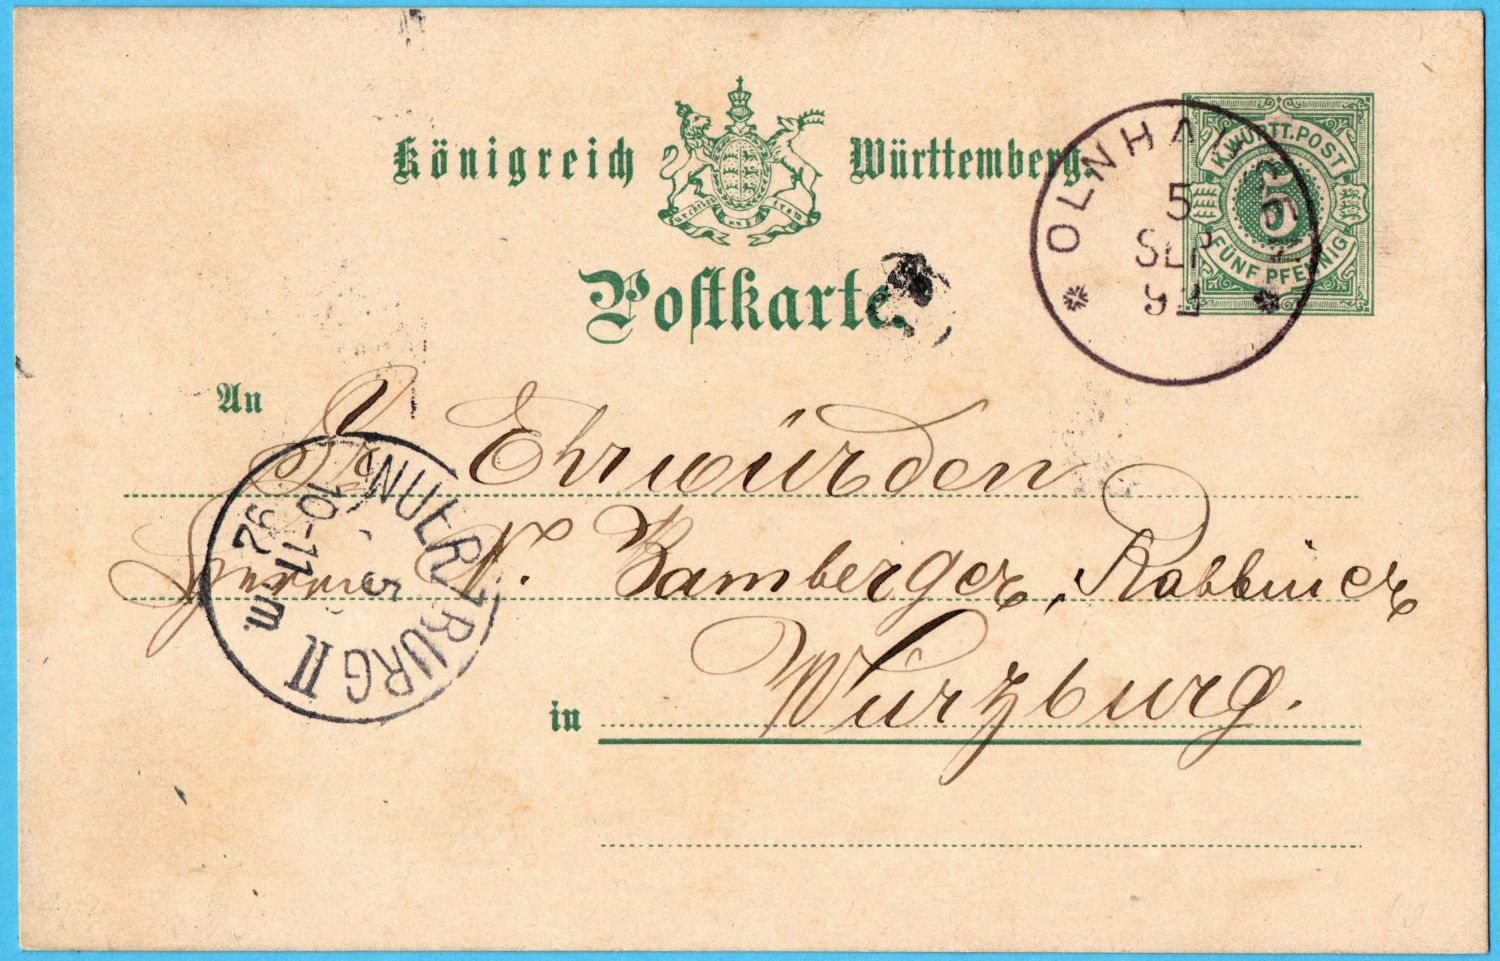 Königreich Württemberg.
furchtlos und trew
Postkarte.
K.WÜRTT.POST
5
FÜNF PFENNIG
OLNHAUSEN
5
SEP
92
An
Sr Ehrwürden
Herrn N. Bamberger, Rabbiner
in Würzburg.
WUERZBURG II
5
10-11 Vm.
92